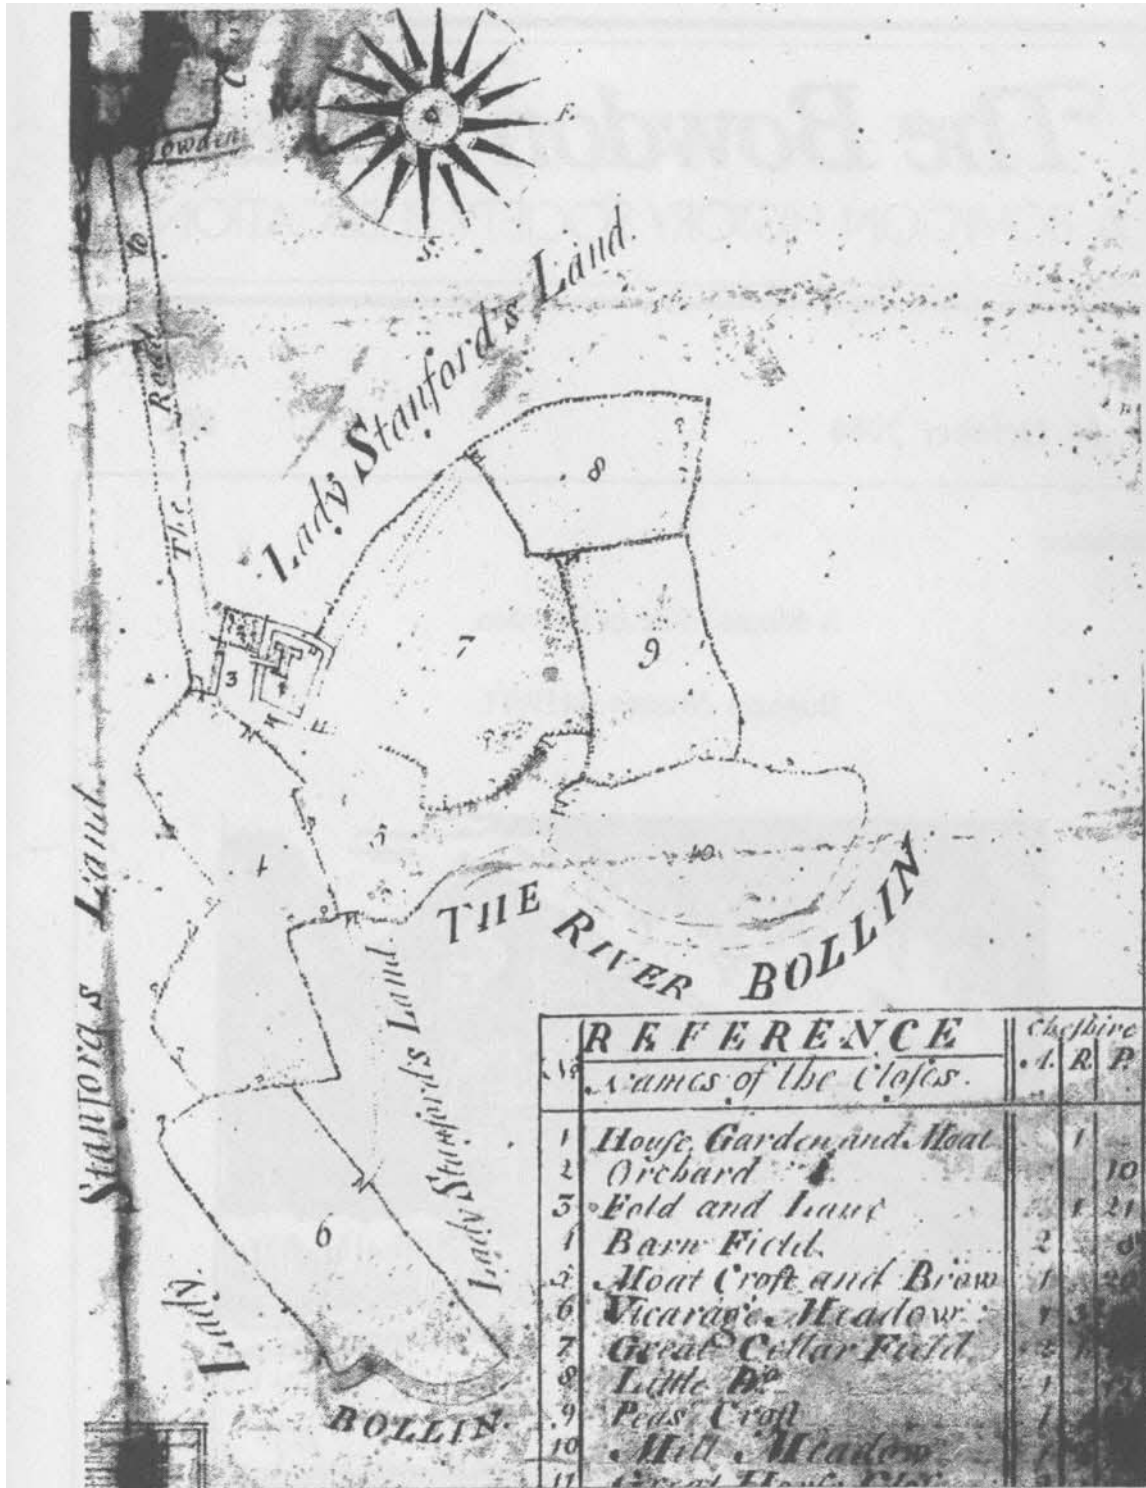 E.
S.
Bowden
The Road to
Lady Stanford's Land.
8
7
9
3
10
6
THE RIVER BOLLIN
Lady Stanford's Land.
Lady Stanford's Land
BOLLIN.
REFERENCE
Cheshire
No. Names of the Closes. A. R. P.
1 House, Garden and Moat 1
2 Orchard 10
3 Fold and Lane 1 21
4 Barn Field. 2
5 Moat Croft and Brow 1 20
6 Vicarage Meadow 1 3
7 Great Cellar Field 2 1
8 Little Do. 1
9 Peas Croft 1
10 Mill Meadow 1
11 Great House Close